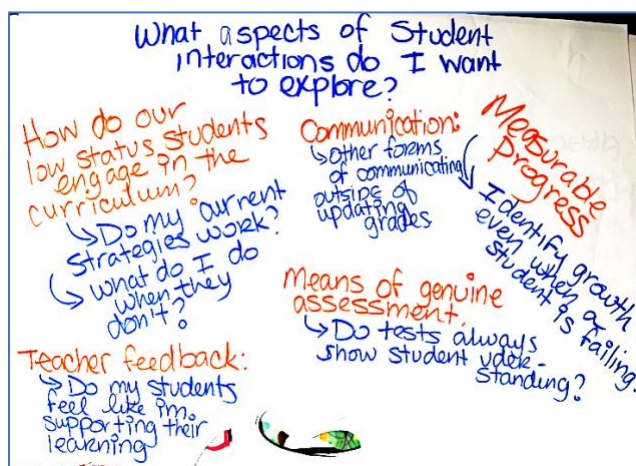 What aspects of Student
interactions do I want
to explore?
How do our
low status students
engage in the
curriculum?
↳ Do my current
strategies work?
↳ What do I do
when they
don't?
Teacher feedback:
↳ Do my students
feel like im
supporting their
learning
Communication:
↳ other forms
of communicating
outside of
updating
grades
Means of genuine
assessment.
↳ Do tests always
show student under-
standing?
Measurable
progress
↳ Identify growth
even when a
student is failing.